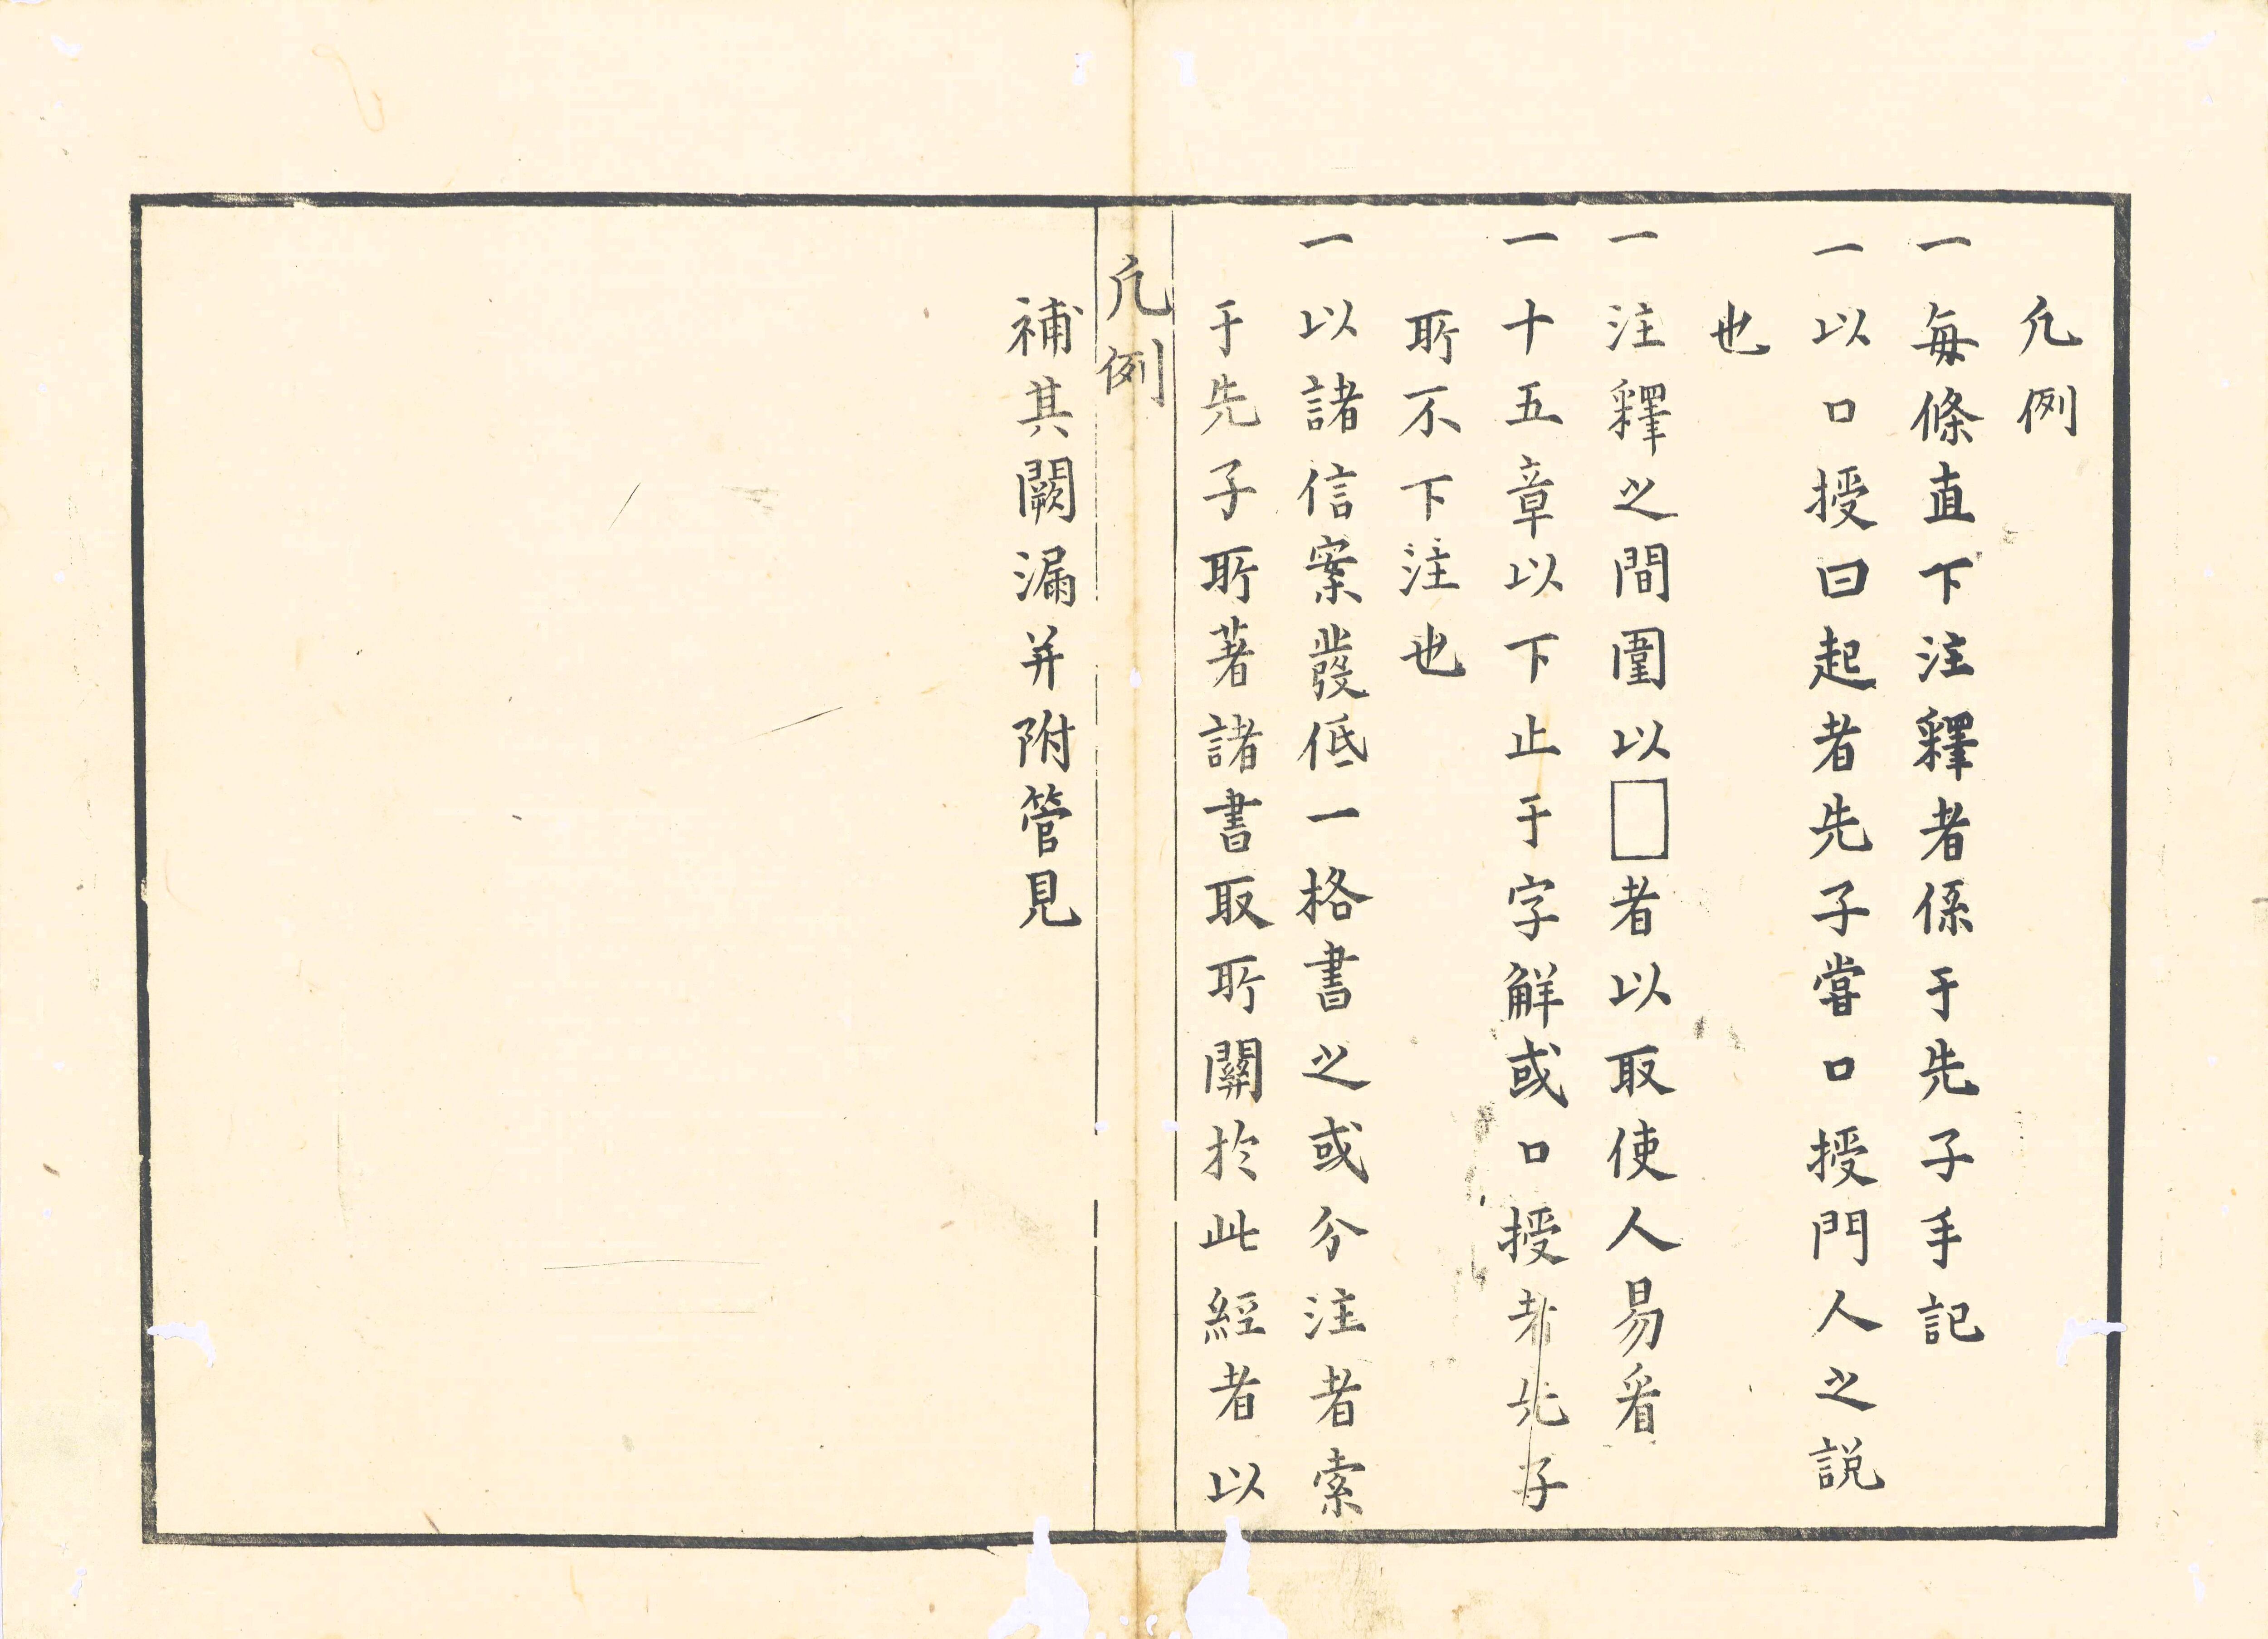 凡例
一每條直下注釋者係于先子手記
一以口授曰起者先子嘗口授門人之説
也
一注釋之間圍以□者以取使人易看
一十五章以下止于字解或口授者先子
所不下注也
一以諸信案發低一格書之或分注者索
于先子所著諸書取所關於此經者以
凡例
補其闕漏并附管見